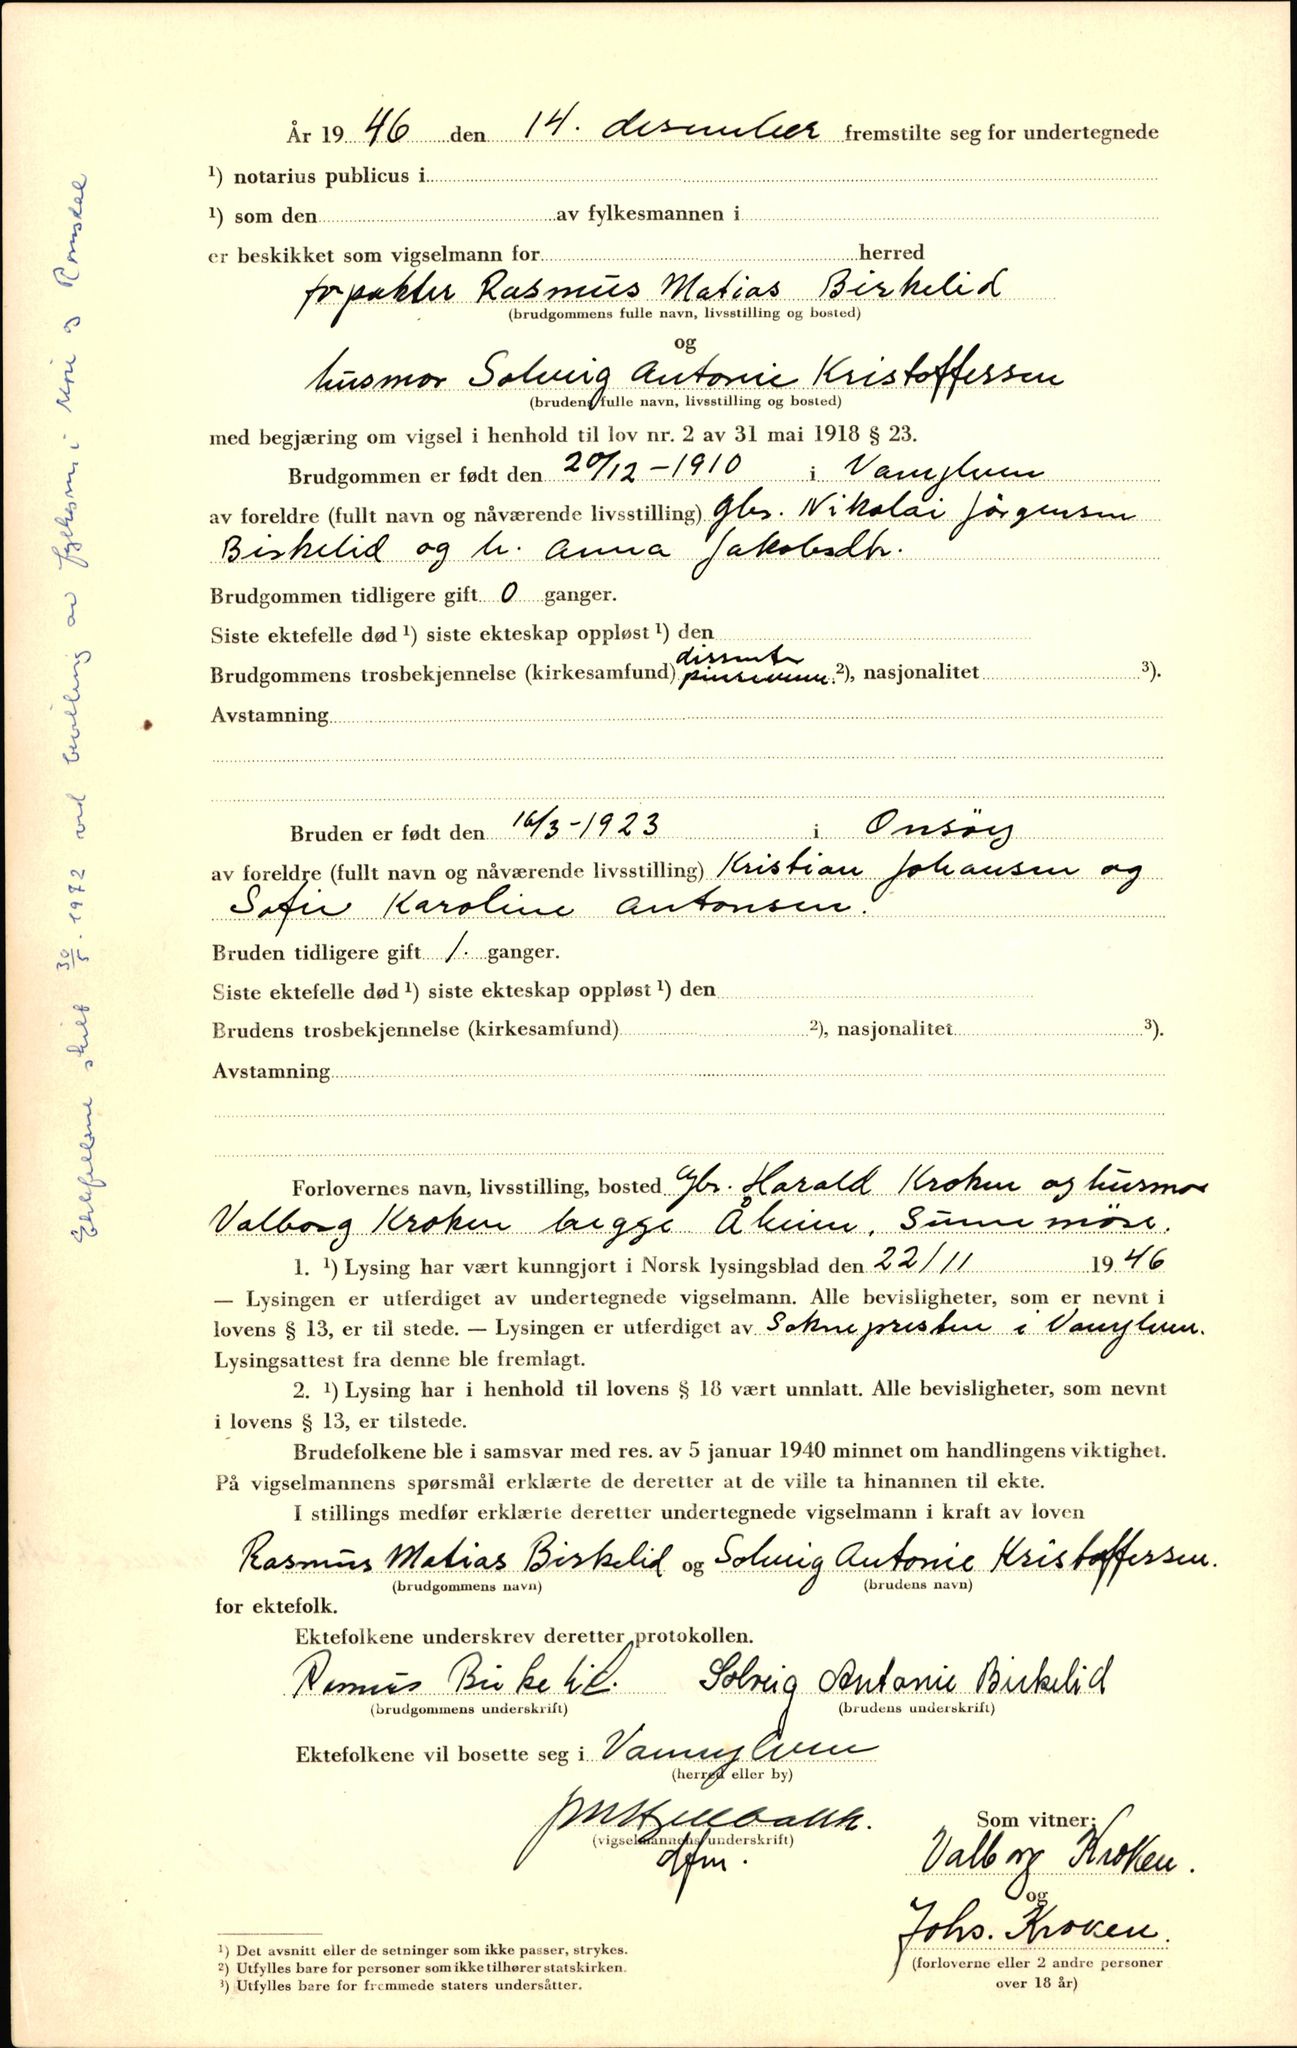 År 19 46 den 14. desember fremstilte seg for undertegnede
¹) notarius publicus i
¹) som den av fylkesmannen i
er beskikket som vigselmann for herred
forpakter Rasmus Matias Birkelid
(brudgommens fulle navn, livsstilling og bosted)
og
husmor Solveig Antonie Kristoffersen
(brudens fulle navn, livsstilling og bosted)
med begjæring om vigsel i henhold til lov nr. 2 av 31 mai 1918 § 23.
Brudgommen er født den 20/12-1910 i Vanylven
av foreldre (fullt navn og nåværende livsstilling) gbr. Nikolai Jørgensen
Birkelid og h. Anna Jakobsdtr.
Brudgommen tidligere gift 0 ganger.
Siste ektefelle død ¹) siste ekteskap oppløst ¹) den
dissenter
Brudgommens trosbekjennelse (kirkesamfund) pinsevenn. ²), nasjonalitet ³).
Avstamning
Bruden er født den 16/3-1923 i Onsöy
av foreldre (fullt navn og nåværende livsstilling) Kristian Johansen og
Sofie Karoline Antonsen.
Bruden tidligere gift 1. ganger.
Siste ektefelle død ¹) siste ekteskap oppløst ¹) den
Brudens trosbekjennelse (kirkesamfund) ²), nasjonalitet ³).
Avstamning
Forlovernes navn, livsstilling, bosted Gbr. Harald Kroken og husmor
Valborg Kroken begge Åheim, Sunnmöre.
1. ¹) Lysing har vært kunngjort i Norsk lysingsblad den 22/11 1946
— Lysingen er utferdiget av undertegnede vigselmann. Alle bevisligheter, som er nevnt i
lovens § 13, er til stede. — Lysingen er utferdiget av Soknepresten i Vanylven.
Lysingsattest fra denne ble fremlagt.
2. ¹) Lysing har i henhold til lovens § 18 vært unnlatt. Alle bevisligheter, som nevnt
i lovens § 13, er tilstede.
Brudefolkene ble i samsvar med res. av 5 januar 1940 minnet om handlingens viktighet.
På vigselmannens spørsmål erklærte de deretter at de ville ta hinannen til ekte.
I stillings medfør erklærte deretter undertegnede vigselmann i kraft av loven
Rasmus Matias Birkelid og Solveig Antonie Kristoffersen.
(brudgommens navn) (brudens navn)
for ektefolk.
Ektefolkene underskrev deretter protokollen.
Rasmus Birkelid. Solveig Antonie Birkelid
(brudgommens underskrift) (brudens underskrift)
Ektefolkene vil bosette seg i Vannylven
(herred eller by)
(vigselmannens underskrift)
dfm.
Som vitner:
Valborg Kroken.
og
Johs. Kroken.
(forloverne eller 2 andre personer
over 18 år)
¹) Det avsnitt eller de setninger som ikke passer, strykes.
²) Utfylles bare for personer som ikke tilhører statskirken.
³) Utfylles bare for fremmede staters undersåtter.
Ektefellene skilt 30/5. 1972 ved bevilling av fylkesm. i Møre og Romsdal